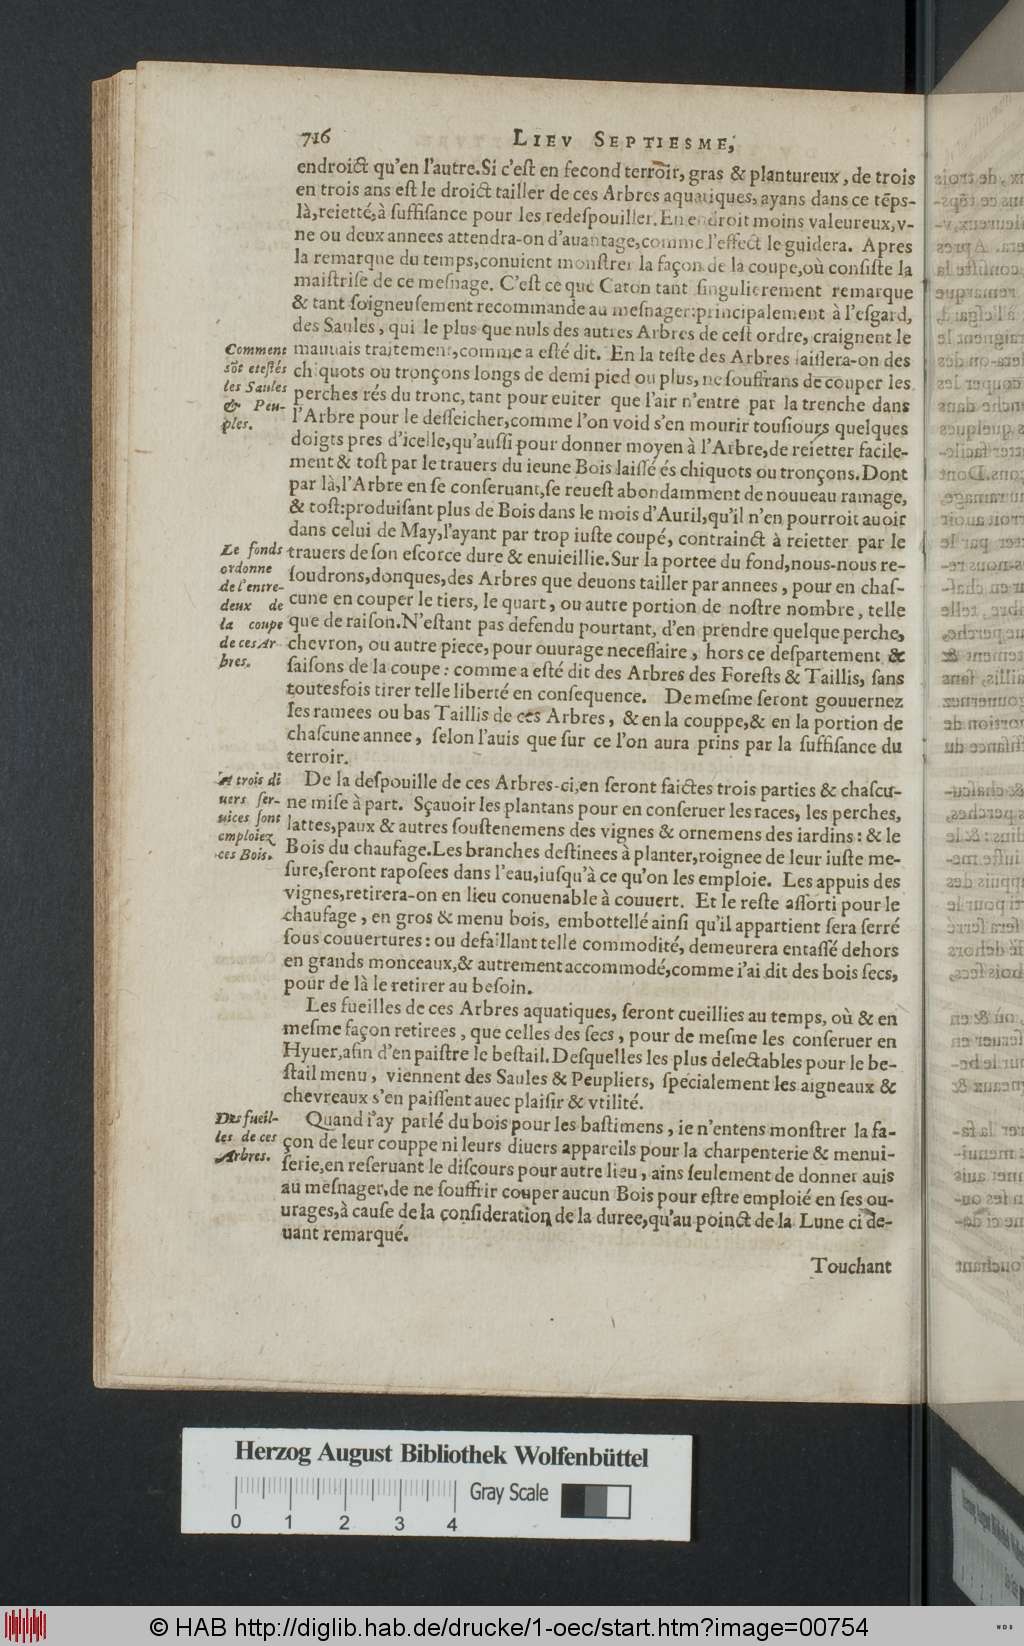 716 LIEV SEPTIESME,
endroict qu'en l'autre. Si c'eſt en ſecond terroir, gras & plantureux, de trois
en trois ans eſt le droict tailler de ces Arbres aquatiques, ayans dans ce tẽps-
là, reietté, à ſuffiſance pour les redeſpouiller. En endroit moins valeureux, v-
ne ou deux annees attendra-on d'auantage, comme l'effect le guidera. Apres
la remarque du temps, conuient monſtrer la façon de la coupe, où conſiſte la
maiſtriſe de ce meſnage. C'eſt ce que Caton tant ſingulierement remarque
& tant ſoigneuſement recommande au meſnager: principalement à l'eſgard,
des Saules, qui le plus que nuls des autres Arbres de ceſt ordre, craignent le
Comment
ſõt eteſtés
les Saules
& Peu-
ples.
mauuais traitement, comme a eſté dit. En la teſte des Arbres laiſſera-on des
chiquots ou tronçons longs de demi pied ou plus, ne ſouffrans de couper les
perches rés du tronc, tant pour euiter que l'air n'entre par la trenche dans
l'Arbre pour le deſſeicher, comme l'on void s'en mourir touſiours quelques
doigts pres d'icelle, qu'auſſi pour donner moyen à l'Arbre, de reietter facile-
ment & toſt par le trauers du ieune Bois laiſſé és chiquots ou tronçons. Dont
par là, l'Arbre en ſe conſeruant, ſe reueſt abondamment de nouueau ramage,
& toſt: produiſant plus de Bois dans le mois d'Auril, qu'il n'en pourroit auoir
dans celui de May, l'ayant par trop iuſte coupé, contrainct à reietter par le
Le fonds
ordonne
de l'entre-
deux de
la coupe
de ces Ar
bres.
trauers de ſon eſcorce dure & enuieillie. Sur la portee du fond, nous-nous re-
ſoudrons, donques, des Arbres que deuons tailler par annees, pour en chaſ-
cune en couper le tiers, le quart, ou autre portion de noſtre nombre, telle
que de raiſon. N'eſtant pas defendu pourtant, d'en prendre quelque perche,
chevron, ou autre piece, pour ouurage neceſſaire, hors ce deſpartement &
ſaiſons de la coupe: comme a eſté dit des Arbres des Foreſts & Taillis, ſans
toutesfois tirer telle liberté en conſequence. De meſme ſeront gouuernez
les ramees ou bas Taillis de ces Arbres, & en la couppe, & en la portion de
chaſcune annee, ſelon l'auis que ſur ce l'on aura prins par la ſuffiſance du
terroir.
A trois di
uers ſer-
uices ſont
emploiez
ces Bois.
De la deſpouille de ces Arbres-ci, en ſeront faictes trois parties & chaſcu-
ne miſe à part. Sçauoir les plantans pour en conſeruer les races, les perches,
lattes, paux & autres ſouſtenemens des vignes & ornemens des iardins: & le
Bois du chaufage. Les branches deſtinees à planter, roignee de leur iuſte me-
ſure, ſeront rapoſees dans l'eau, iuſqu'à ce qu'on les emploie. Les appuis des
vignes, retirera-on en lieu conuenable à couuert. Et le reſte aſſorti pour le
chaufage, en gros & menu bois, embottellé ainſi qu'il appartient ſera ſerré
ſous couuertures: ou defaillant telle commodité, demeurera entaſſé dehors
en grands monceaux, & autrement accommodé, comme i'ai dit des bois ſecs,
pour de là le retirer au beſoin.
Les fueilles de ces Arbres aquatiques, ſeront cueillies au temps, où & en
meſme façon retirees, que celles des ſecs, pour de meſme les conſeruer en
Hyuer, afin d'en paiſtre le beſtail. Deſquelles les plus delectables pour le be-
ſtail menu, viennent des Saules & Peupliers, ſpecialement les aigneaux &
chevreaux s'en paiſſent auec plaiſir & vtilité.
Des fueil-
les de ces
Arbres.
Quand i'ay parlé du bois pour les baſtimens, ie n'entens monſtrer la fa-
çon de leur couppe ni leurs diuers appareils pour la charpenterie & menui-
ſerie, en reſeruant le diſcours pour autre lieu, ains ſeulement de donner auis
au meſnager, de ne ſouffrir couper aucun Bois pour eſtre emploié en ſes ou-
urages, à cauſe de la conſideration de la duree, qu'au poinct de la Lune ci de-
uant remarqué.
Touchant
Herzog August Bibliothek Wolfenbüttel
Gray Scale
0 1 2 3 4
© HAB http://diglib.hab.de/drucke/1-oec/start.htm?image=00754